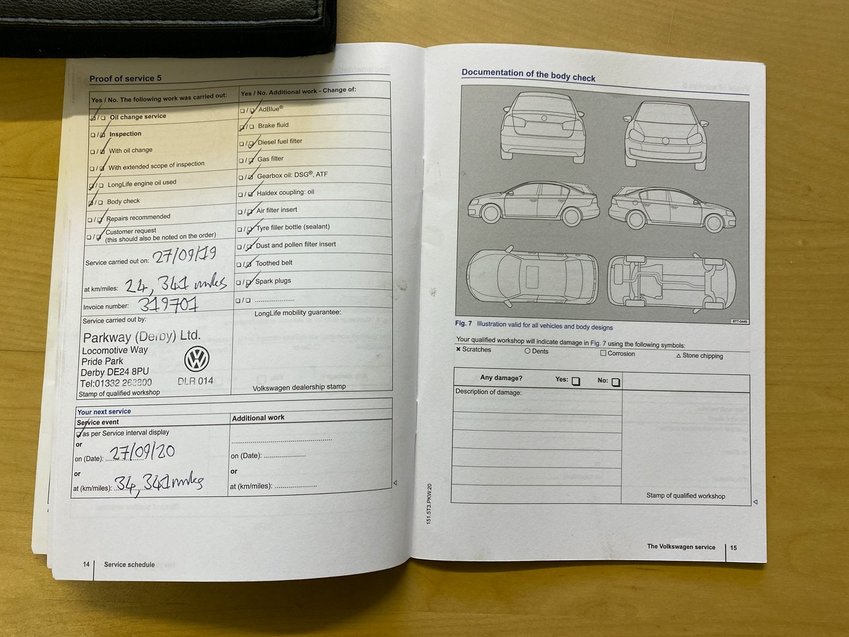 Proof of service 5
Yes / No. The following work was carried out:
☑/☐ Oil change service
☐/☑ Inspection
☐/☑ With oil change
☐/☑ With extended scope of inspection
☑/☐ LongLife engine oil used
☑/☐ Body check
☐/☑ Repairs recommended
☐/☑ Customer request
(this should also be noted on the order)
Service carried out on: 27/09/19
at km/miles: 24,341 miles
Invoice number: 319701
Service carried out by:
Parkway (Derby) Ltd.
Locomotive Way
Pride Park
Derby DE24 8PU
Tel:01332 262800
DLR 014
Stamp of qualified workshop
Yes / No. Additional work - Change of:
☐/☑ AdBlue®
☑/☐ Brake fluid
☐/☑ Diesel fuel filter
☐/☑ Gas filter
☐/☑ Gearbox oil: DSG®, ATF
☐/☑ Haldex coupling: oil
☐/☑ Air filter insert
☐/☑ Tyre filler bottle (sealant)
☐/☑ Dust and pollen filter insert
☐/☑ Toothed belt
☐/☑ Spark plugs
☐/☐ ....................
LongLife mobility guarantee:
Volkswagen dealership stamp
Your next service
Service event
☑ as per Service interval display
or
on (Date): 27/09/20
or
at (km/miles): 34,341 miles
Additional work
..............................
on (Date): ....................
or
at (km/miles): ....................
14 Service schedule
Documentation of the body check
Fig. 7 Illustration valid for all vehicles and body designs
Your qualified workshop will indicate damage in Fig. 7 using the following symbols:
× Scratches ○ Dents □ Corrosion △ Stone chipping
Any damage? Yes: ☐ No: ☐
Description of damage:
Stamp of qualified workshop
151.5T3.PKW.20
The Volkswagen service 15